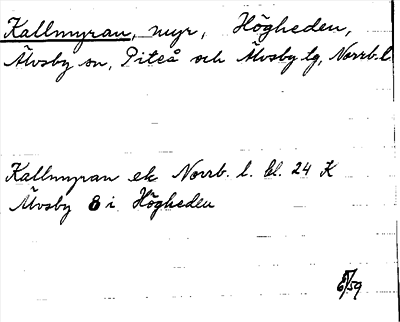 Kallmyran, myr, Högheden,
Älvsby sn, Piteå och Älvsby tg, Norrb. l.
Kallmyran ek Norrb. l. bl. 24 K
Älvsby 8 i Högheden
/59